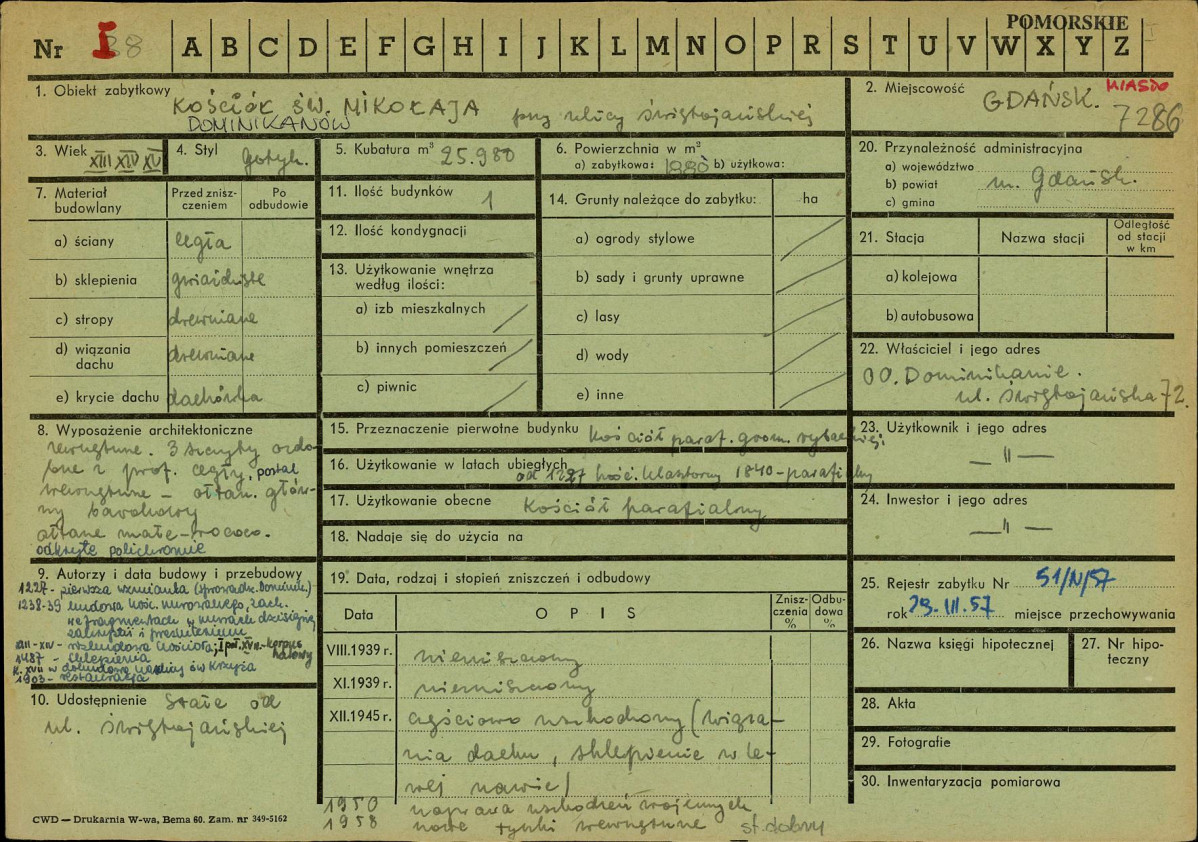 POMORSKIE
Nr I 38 A B C D E F G H I J K L M N O P R S T U V W X Y Z
1. Obiekt zabytkowy KOŚCIÓŁ ŚW. MIKOŁAJA przy ulicy Świętojańskiej
DOMINIKANÓW
2. Miejscowość GDAŃSK. MIASTO
7286
3. Wiek XIII XIV XV
4. Styl Gotyk.
5. Kubatura m³ 25.980
6. Powierzchnia w m²
a) zabytkowa: 1980 b) użytkowa:
7. Materiał budowlany
Przed zniszczeniem
Po odbudowie
a) ściany cegła
b) sklepienia gwiaździste
c) stropy drewniane
d) wiązania dachu drewniane
e) krycie dachu dachówka
8. Wyposażenie architektoniczne
zewnętrzne. 3 szczyty ozdo-
bne z prof. cegły, portal
wewnętrzne – ołtarz głów-
ny barokowy
ołtarze małe – rococo.
odkryte polichromie
9. Autorzy i data budowy i przebudowy
1227 - pierwsza wzmianka (sprowadz. Dominik.)
1238-39 budowa kośc. murowanego, zach.
we fragmentach w murach dzisiejszej
zakrystii i prezbiterium
XIII - XIV - rozbudowa kościoła, I poł. XV w. - korpus
halowy
1487 - sklepienia
k. XVII w dobudowa kaplicy św Krzyża
1903 - restauracja
10. Udostępnienie Stałe od
ul. Świętojańskiej
11. Ilość budynków 1
12. Ilość kondygnacji
13. Użytkowanie wnętrza według ilości:
a) izb mieszkalnych
b) innych pomieszczeń
c) piwnic
14. Grunty należące do zabytku: ha
a) ogrody stylowe
b) sady i grunty uprawne
c) lasy
d) wody
e) inne
15. Przeznaczenie pierwotne budynku kościół paraf. grom. rybackiej
16. Użytkowanie w latach ubiegłych
od 1227 kość. klasztorny 1840 - parafialny
17. Użytkowanie obecne Kościół parafialny
18. Nadaje się do użycia na
19. Data, rodzaj i stopień zniszczeń i odbudowy
Data
OPIS
Zniszczenia %
Odbudowa %
VIII.1939 r. niezniszczony
XI.1939 r. niezniszczony
XII.1945 r. częściowo uszkodzony (wiąza-
nia dachu, sklepienie w le-
wej nawie)
1950 naprawa uszkodzeń wojennych
1958 nowe tynki wewnętrzne st. dobry
20. Przynależność administracyjna
a) województwo
b) powiat m. Gdańsk.
c) gmina
21. Stacja
Nazwa stacji
Odległość od stacji w km
a) kolejowa
b) autobusowa
22. Właściciel i jego adres
OO. Dominikanie.
ul. Świętojańska 72.
23. Użytkownik i jego adres
— " —
24. Inwestor i jego adres
— " —
25. Rejestr zabytku Nr 51/N/57
rok 29.III.57 miejsce przechowywania
26. Nazwa księgi hipotecznej
27. Nr hipoteczny
28. Akta
29. Fotografie
30. Inwentaryzacja pomiarowa
CWD — Drukarnia W-wa, Bema 60. Zam. nr 349-5162